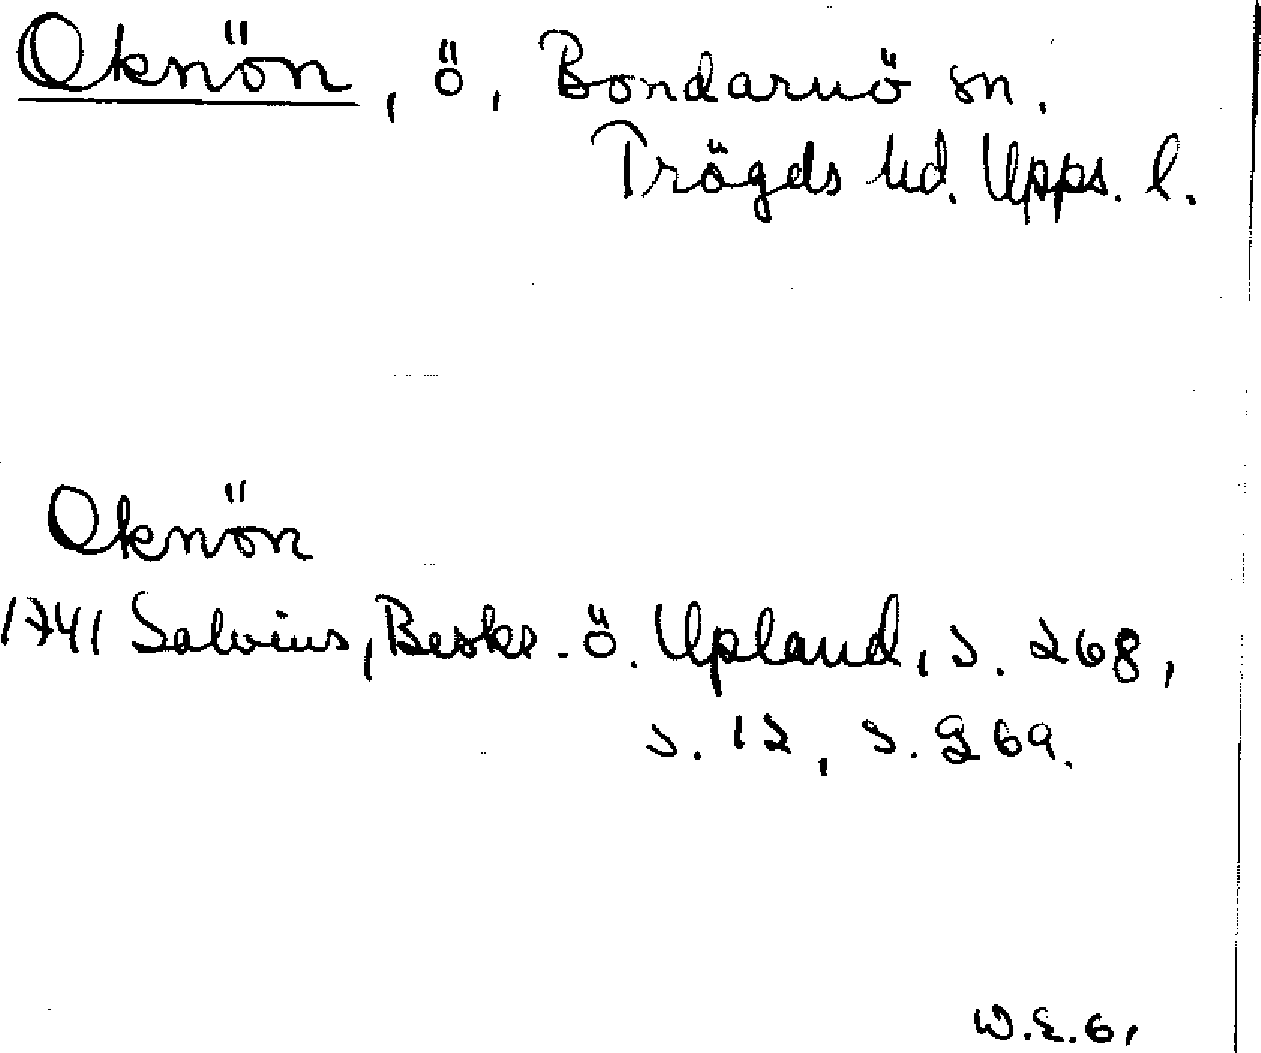 Oknön, ö, Bondarnö sn.
Trögds hd. Upps. l.
Oknön
1741 Salvius, Beskr. ö. Upland, s. 268,
s. 12, s. 269.
W.E.G.